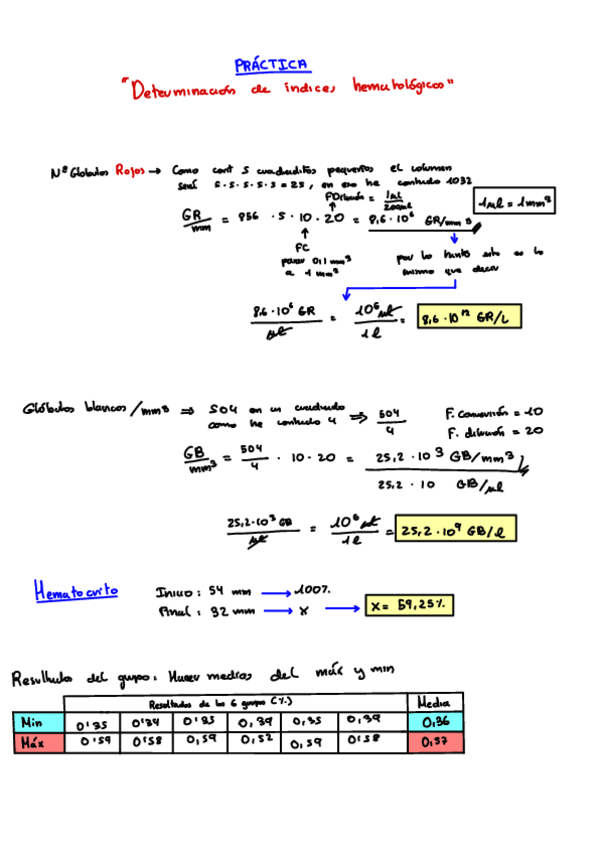 PRÁCTICA
"Determinación de índices hematológicos"
Nº Glóbulos Rojos → Como cont 5 cuadraditos pequeños el volumen
será 5·5·5·5·5 = 25, en eso he contado 1032
FDilución = 1µl / 200µl
1µl = 1mm³
GR/mm = 856 · 5 · 10 · 20 = 8,6·10⁶ GR/mm³
FC
pasar 0,1 mm³
a 1 mm³
por lo tanto esto es lo
mismo que decir
8,6·10⁶ GR / µl = 10⁶ µl / 1 l = 8,6·10¹² GR/L
Glóbulos blancos/mm³ ⇒ 504 en un cuadrado
como he contado 4 ⇒ 504/4
F. conversión = 10
F. dilución = 20
GB/mm³ = 504/4 · 10 · 20 = 25,2 · 10³ GB/mm³
25,2 · 10 GB/µl
25,2·10³ GB / µl = 10⁶ µl / 1 l = 25,2·10⁹ GB/l
Hematocrito
Inicio: 54 mm → 100%
Final: 32 mm → x → x = 59,25%
Resultado del grupo: Hacer medias del máx y min
Resultados de los 6 grupos (%) Media
Min 0'35 0'34 0'35 0,39 0,35 0,39 0,36
Máx 0'59 0'58 0,59 0,52 0,59 0'58 0,57